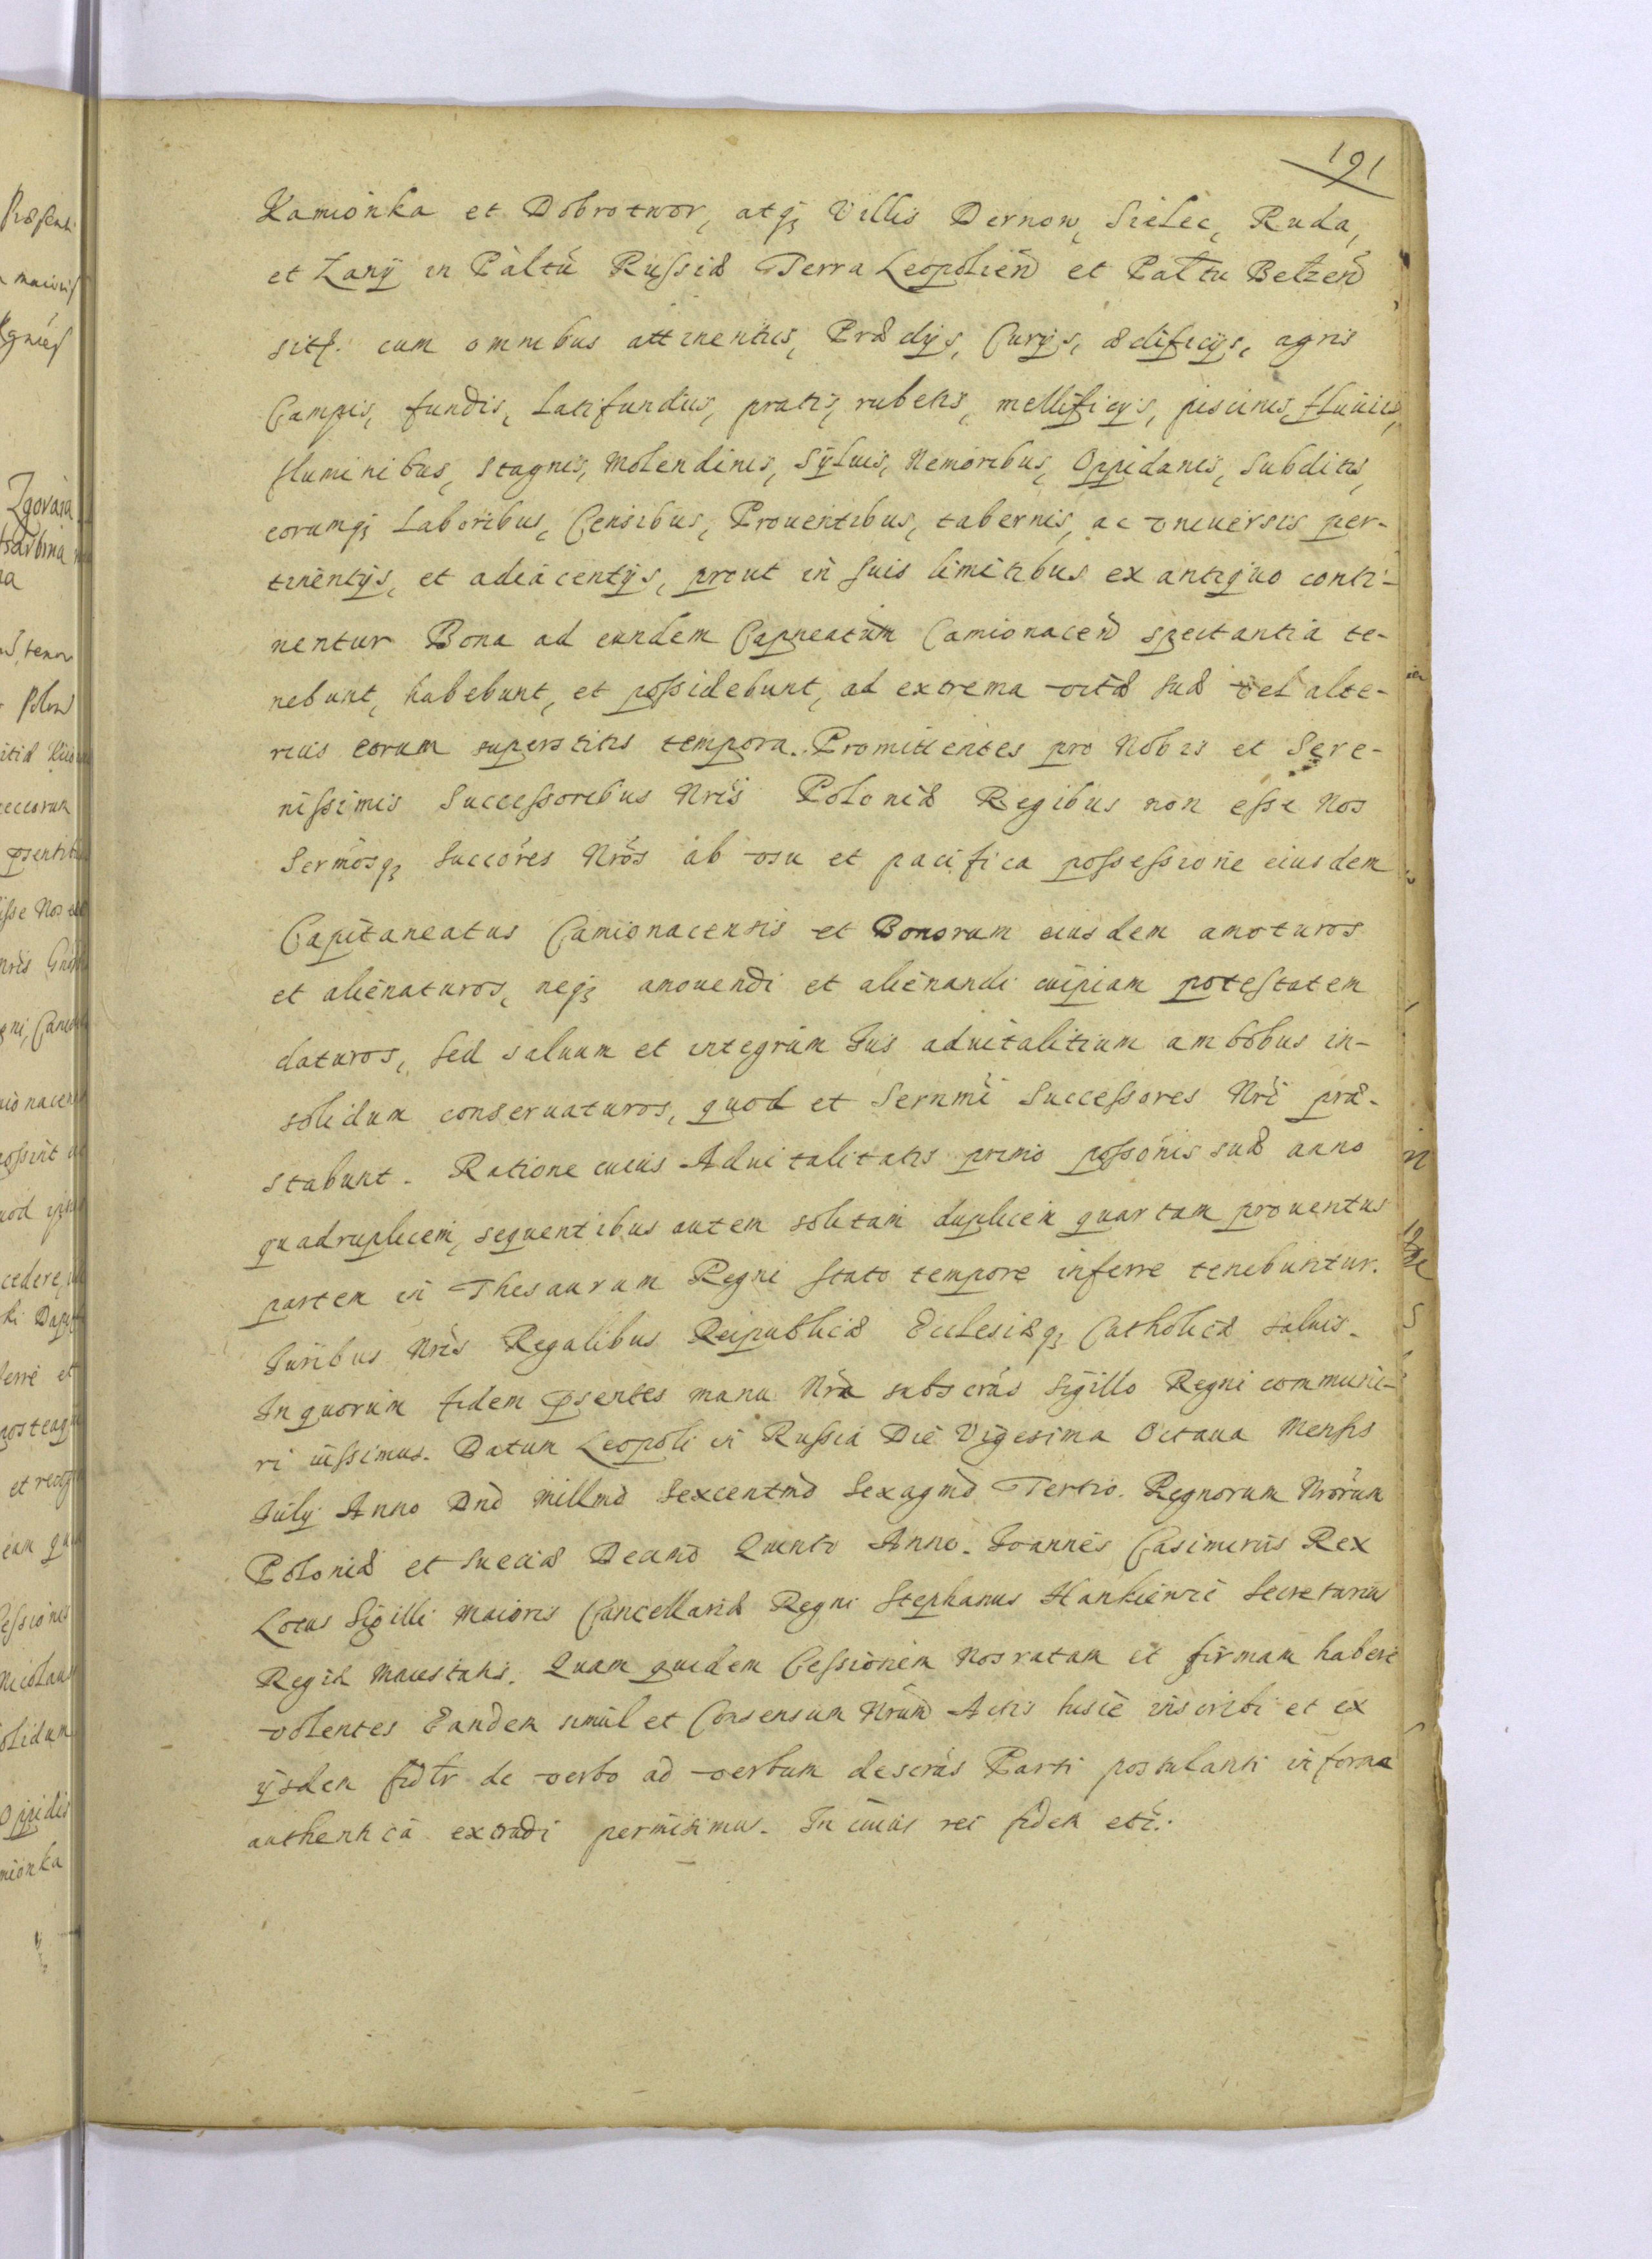 191
Kamionka et Dobrotwor, atq; Villis Dernow, Sielec, Ruda,
et Lany in Paltu Russiæ Terra Leopolien et Paltu Belzen
sitis. cum omnibus attinentiis, Prædijs, Curijs, ædificijs, agris
Campis, fundis, Latifundiis, pratis, rubetis, mellificijs, piscinis, fluviis,
fluminibus, stagnis, Molendinis, Syluis, Nemoribus, Oppidanis, Subditis,
eorumq; Laboribus, Censibus, Prouentibus, tabernis, ac vniuersis per-
tinentijs, et adiacentijs, prout in suis limitibus ex antiquo conti-
nentur Bona ad eundem Capneatum Camionacen spectantia te-
nebunt, habebunt, et possidebunt, ad extrema vitæ suæ vel alte-
rius eorum superstitis tempora. Promittentes pro Nobis et Sere-
nissimis Successoribus Nris Poloniæ Regibus non esse Nos
Sermosq; Succores Nros ab vsu et pacifica possessione eiusdem
Capitaneatus Camionacensis et Bonorum eiusdem amoturos
et alienaturos, neq; amouendi et alienandi cuipiam potestatem
daturos, sed saluum et integrum Ius aduitalitium ambobus in-
solidum conseruaturos, quod et Sernmi Successores Nri præ-
stabunt. Ratione cuius Aduitalitatis primo possonis suæ anno
quadruplicem, sequentibus autem solitam duplicem quartam prouentus
partem in Thesaurum Regni stato tempore inferre tenebuntur.
Iuribus Nris Regalibus Reipublicæ Ecclesiæq; Catholicæ saluis.
In quorum fidem psentes manu Nra subscras Sigillo Regni communi-
ri iussimus. Datum Leopoli in Russia Die Vigesima Octaua Mensis
July Anno Dnd Millmo Sexcentmo Sexagmo Tertio. Regnorum Nrorum
Poloniæ et Sueciæ Decimo Quinto Anno. Ioannes Casimirus Rex
Locus Sigilli Maioris Cancellariæ Regni Stephanus Hankiewic Secretarius
Regiæ Maiestatis. Quam quidem Cessionem Nos ratam et firmam habere
volentes Eandem simul et Consensum Nrum Actis hisce inscribi et ex
ijsdem fidtr de verbo ad verbum descras Parti postulanti in forma
authentica extradi permisimus. In cuius rei fidem etc.